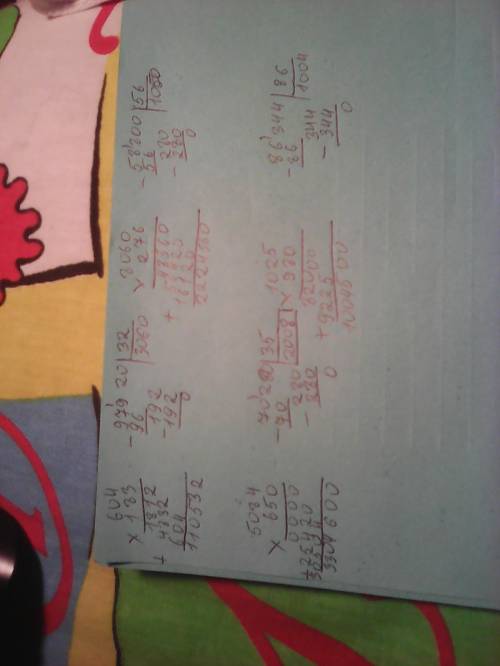 604
× 183
1812
+ 4832
604
110532
- 97920 | 32
96 | 3060
192
- 192
0
× 8060
276
48360
+
16120
2224560
- 58800 | 56
56 | 1050
280
- 280
0
× 5084
650
0000
+ 25420
30504
3304600
- 70280 | 35
70 | 2008
280
- 280
0
× 1025
980
82000
+ 9225
1004500
- 86344 | 86
86 | 1004
344
- 344
0